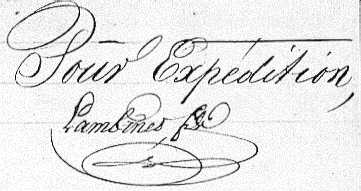 Pour Expédition,
Lambinet,